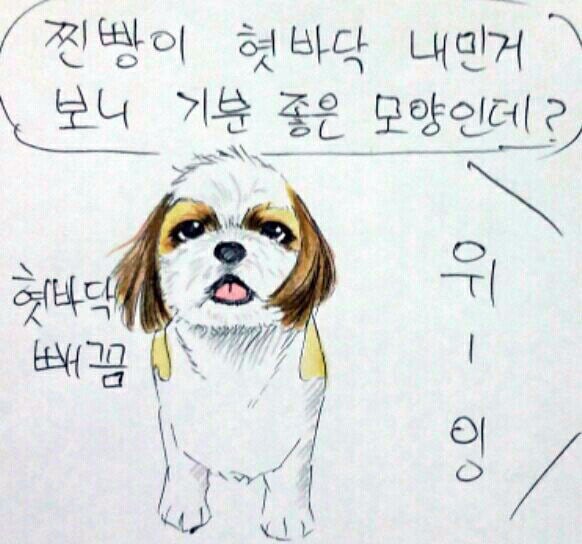 찐빵이 혓바닥 내민거
보니 기분 좋은 모양인데?
혓바닥
빼꼼
위
ㅣ
잉